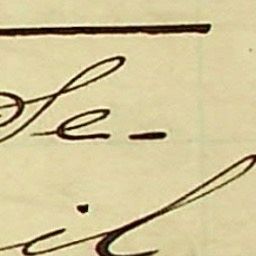 Se-
il